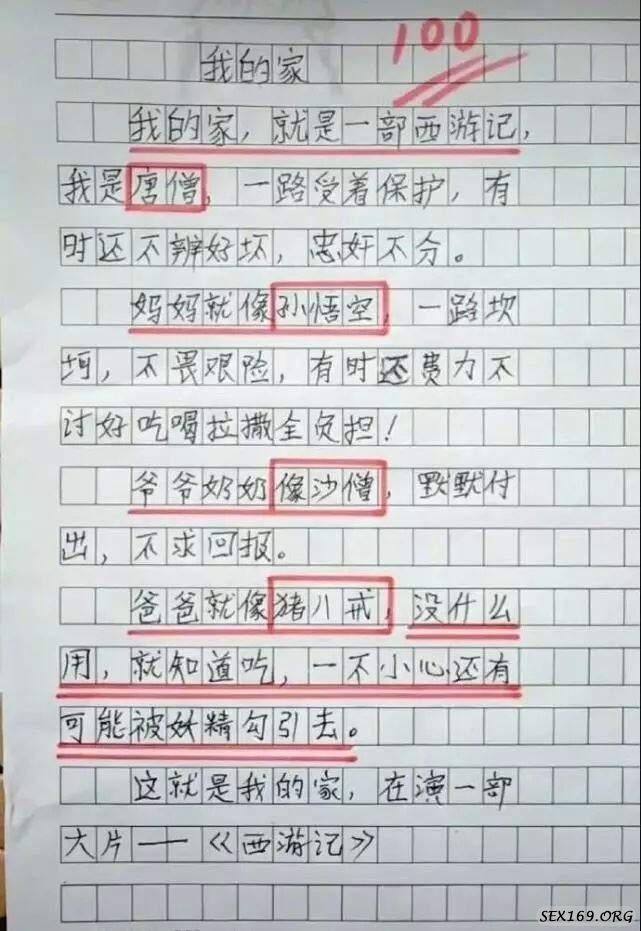 100
我的家
我的家，就是一部西游记，
我是唐僧，一路受着保护，有
时还不辨好坏，忠奸不分。
妈妈就像孙悟空，一路坎
坷，不畏艰险，有时还费力不
讨好吃喝拉撒全负担！
爷爷奶奶像沙僧，默默付
出，不求回报。
爸爸就像猪八戒，没什么
用，就知道吃，一不小心还有
可能被妖精勾引去。
这就是我的家，在演一部
大片——《西游记》
SEX169.ORG